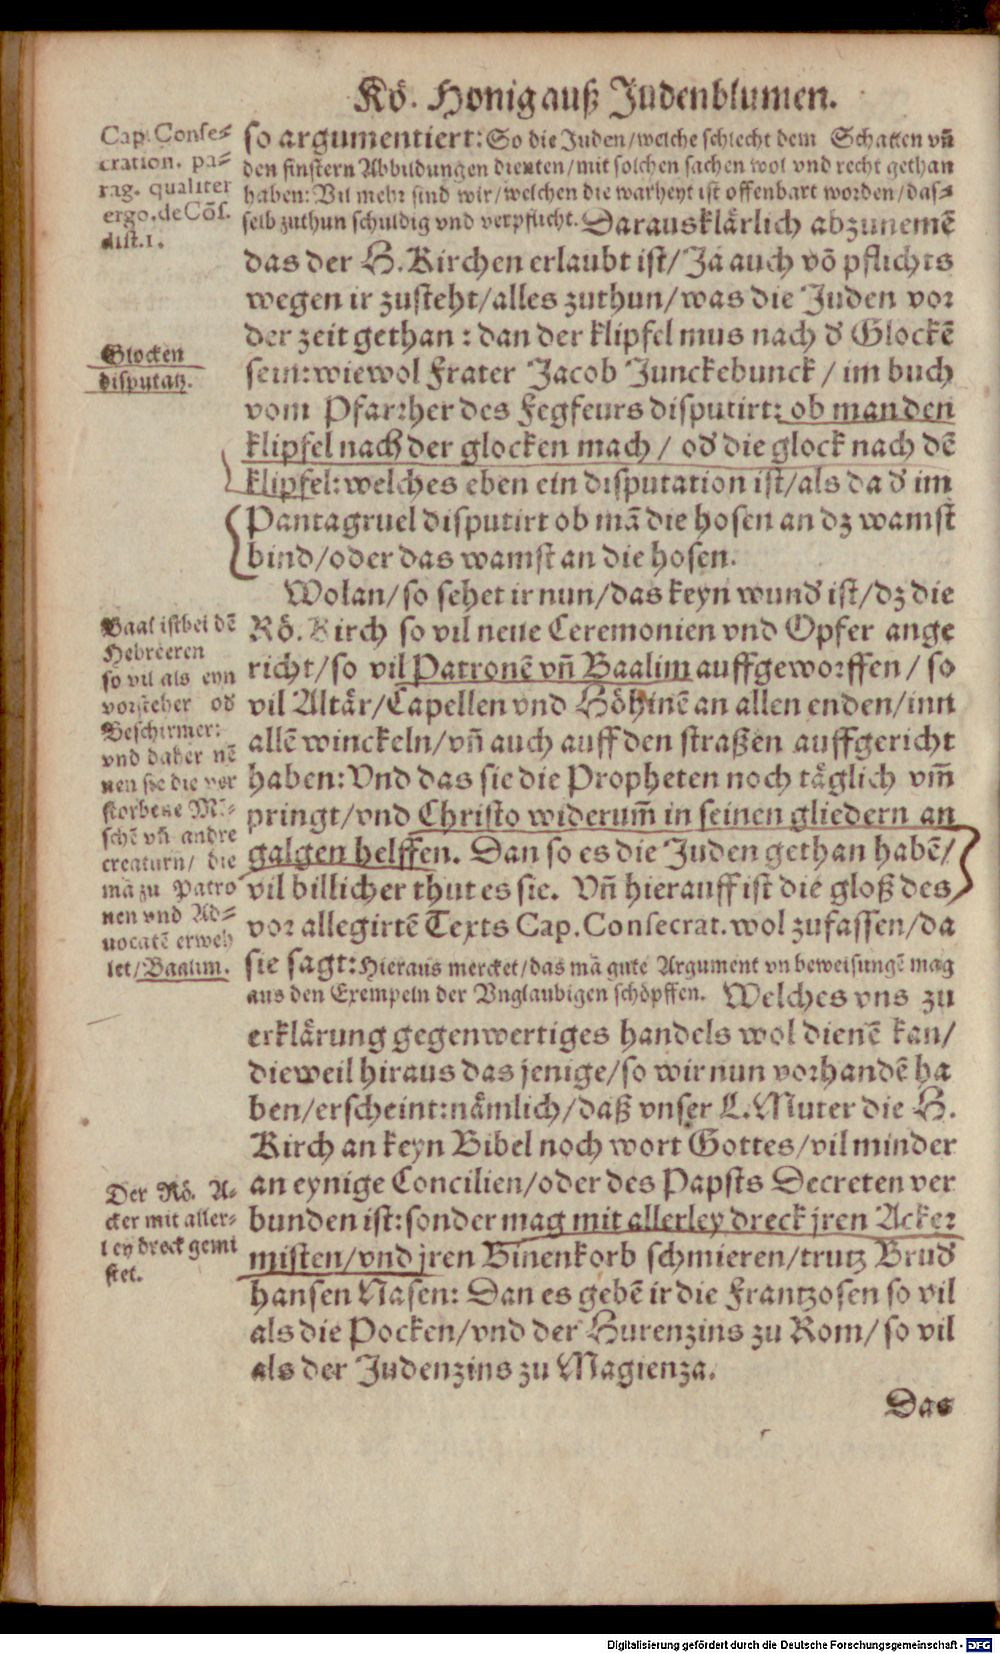 Rö. Honig auß Judenblumen.
Cap. Conse⸗
cration. pa⸗
rag. qualiter
ergo. de Cōſ.
diſt. 1.
ſo argumentiert: So die Juden/welche ſchlecht dem Schatten vñ
den finſtern Abbildungen dienten/mit ſolchen ſachen wol vnd recht gethan
haben: Vil mehr ſind wir/welchen die warheyt iſt offenbart worden/das⸗
ſelb zuthun ſchuldig vnd verpflicht. Daraus klärlich abzunemē
das der H. Kirchen erlaubt iſt/Ja auch vō pflichts
wegen ir zuſteht/alles zuthun/was die Juden vor
der zeit gethan: dan der klipfel mus nach d̕ Glockē
Glocken
diſputatz.
ſein: wiewol Frater Jacob Junckebunck/im buch
vom Pfarrher des Fegfeurs diſputirt: ob man den
klipfel nach der glocken mach/od̕ die glock nach dē
klipfel: welches eben ein diſputation iſt/als da d̕ im
Pantagruel diſputirt ob mā die hoſen an dz wamſt
bind/oder das wamſt an die hoſen.
Wolan/ſo ſehet ir nun/das keyn wund̕ iſt/dz die
Rö. Kirch ſo vil neue Ceremonien vnd Opfer ange
richt/ſo vil Patronē vñ Baalim auffgeworffen/ſo
vil Altär/Capellen vnd Höhinē an allen enden/inn
allē winckeln/vñ auch auff den ſtraßen auffgericht
haben: Vnd das ſie die Propheten noch täglich vm̄
pringt/vnd Chriſto widerum̄ in ſeinen gliedern an
galgen helffen. Dan ſo es die Juden gethan habē/
vil billicher thut es ſie. Vñ hierauff iſt die gloß des
Baal iſt bei dē
Hebreeren
ſo vil als eyn
vorſteher od̕
Beſchirmer:
vnd daher nē
nen ſie die ver
ſtorbene Mē⸗
ſchē vñ andre
creaturn/die
mā zu Patro
nen vnd Ad⸗
uocatē erweh
let/Baalim.
vor allegirtē Texts Cap. Conſecrat. wol zufaſſen/da
ſie ſagt: Hieraus mercket/das mā gute Argument vn beweiſungē mag
aus den Exempeln der Vnglaubigen ſchöpffen. Welches vns zu
erklärung gegenwertiges handels wol dienē kan/
dieweil hiraus das jenige/ſo wir nun vorhandē ha
ben/erſcheint: nämlich/daß vnſer L. Muter die H.
Kirch an keyn Bibel noch wort Gottes/vil minder
an eynige Concilien/oder des Papſts Decreten ver
bunden iſt: ſonder mag mit allerley dreck jren Acker
miſten/vnd jren Binenkorb ſchmieren/trutz Brud̕
Der Rö. A⸗
cker mit aller⸗
ley dreck gemi
ſtet.
hanſen Naſen: Dan es gebē ir die Frantzoſen ſo vil
als die Pocken/vnd der Hurenzins zu Rom/ſo vil
als der Judenzins zu Magienza.
Das
Digitalisierung gefördert durch die Deutsche Forschungsgemeinschaft - DFG